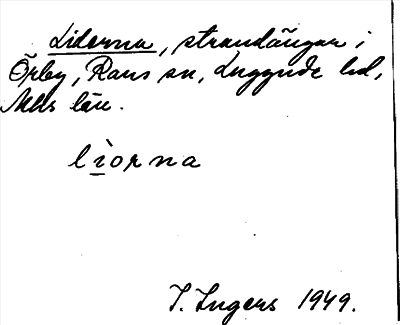 Liderna, strandängar i
Örby, Raus sn, Luggude hd,
Mlhs län.
lìorna
I. Ingers 1949.